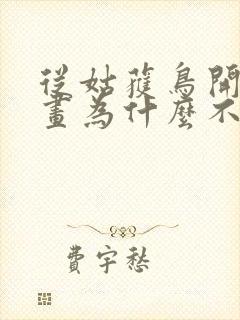 從姑獲鳥開
畫為什麼不
費宇愁